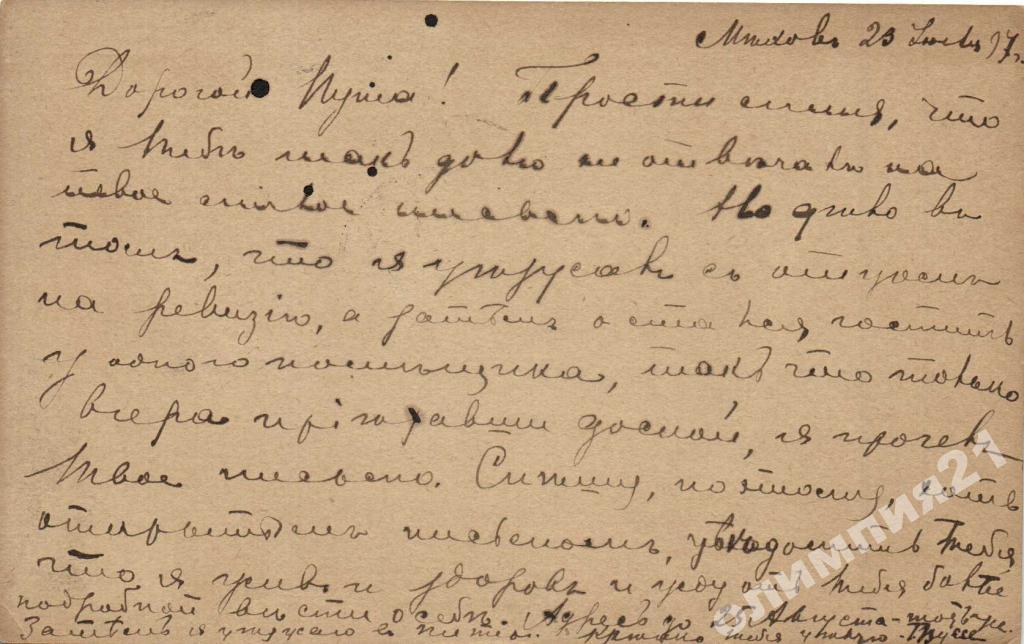 Мѣховъ 23 Іюля 97 г.
Дорогой Пуша! Прости меня, что
я тебѣ такъ долго не отвѣчалъ на
твое милое письмо. Но дѣло въ
томъ, что я уѣзжалъ съ отцомъ
на ревизію, а затѣмъ остался гостить
у одного помѣщика, такъ что только
вчера пріѣхавши домой, я прочелъ
твое письмо. Спѣшу, поэтому, хоть
открытымъ письмомъ, увѣдомить тебя,
что я живъ и здоровъ и жду отъ тебя болѣе
подробной вѣсти о себѣ. Адресъ до 25 Августа тотъ же.
Затѣмъ я уѣзжаю въ тебя
олимпия21